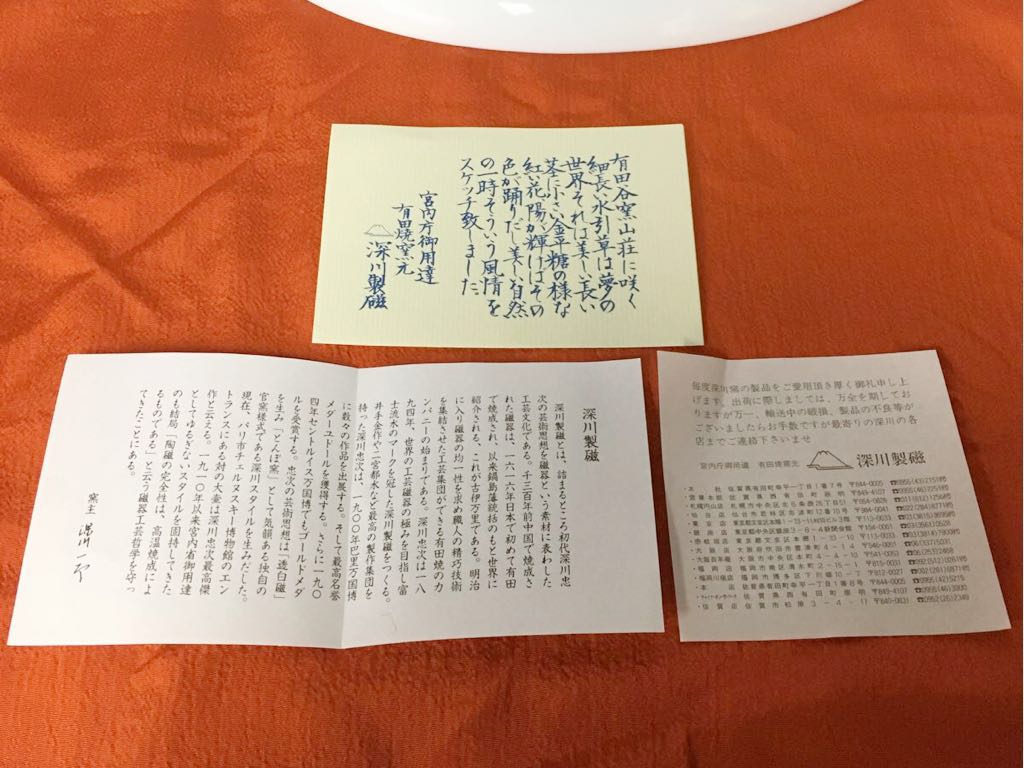 有田谷窯山荘に咲く
細長い水引草は夢の
世界それは美しい長い
茎に小さい金平糖の様な
紅い花陽が輝けばその
色が踊りだし美しい自然
の一時そういう風情を
スケッチ致しました
宮内庁御用達
有田焼窯元
深川製磁
深川製磁
深川製磁とは、詰まるところ初代深川忠
次の芸術思想を磁器という素材に表わした
工芸文化である。千三百年前中国で焼成さ
れた磁器は、一六一六年日本で初めて有田
で焼成され、以来鍋島藩統括のもと世界に
紹介される、これが古伊万里である。明治
に入り磁器の均一性を求め職人の精巧技術
を集結させた工芸集団ができる有田焼のカ
ンパニーの始まりである。深川忠次は一八
九四年、世界の工芸磁器の極みを目指し富
士流水のマークを冠した深川製磁をつくる。
井手金作や二宮都水など最高の製作集団を
持った深川忠次は、一九〇〇年巴里万国博
に数々の作品を出展する。そして最高名誉
メダーユドトールを獲得する。さらに一九〇
四年セントルイス万国博でもゴールドメダ
ルを受賞する。忠次の芸術思想は「透白磁」
を生み「とんぼ窯」として気韻ある独自の
官窯様式である深川スタイルを生みだした。
現在、パリ市チェルヌスキー博物館のエン
トランスにある対の大壷は深川忠次最高傑
作と云える。一九一〇年以来宮内省御用達
としてゆるぎないスタイルを固持してきた
のも結局「陶磁の完全性は、高温焼成によ
るものである」と云う磁器工芸哲学を守っ
てきたことにある。
窯主 深川一太
毎度深川窯の製品をご愛用頂き厚く御礼申し上
げます。出荷に際しましては、万全を期してお
りますが万一、輸送中の破損、製品の不良等が
ございましたらお手数ですが最寄りの深川の各
店までご連絡下さいませ
宮内庁御用達 有田焼窯元 深川製磁
・本社 佐賀県有田町幸平一丁目1番7号 〒844-0005
・営業本部 佐賀県西有田町原明 〒849-4107